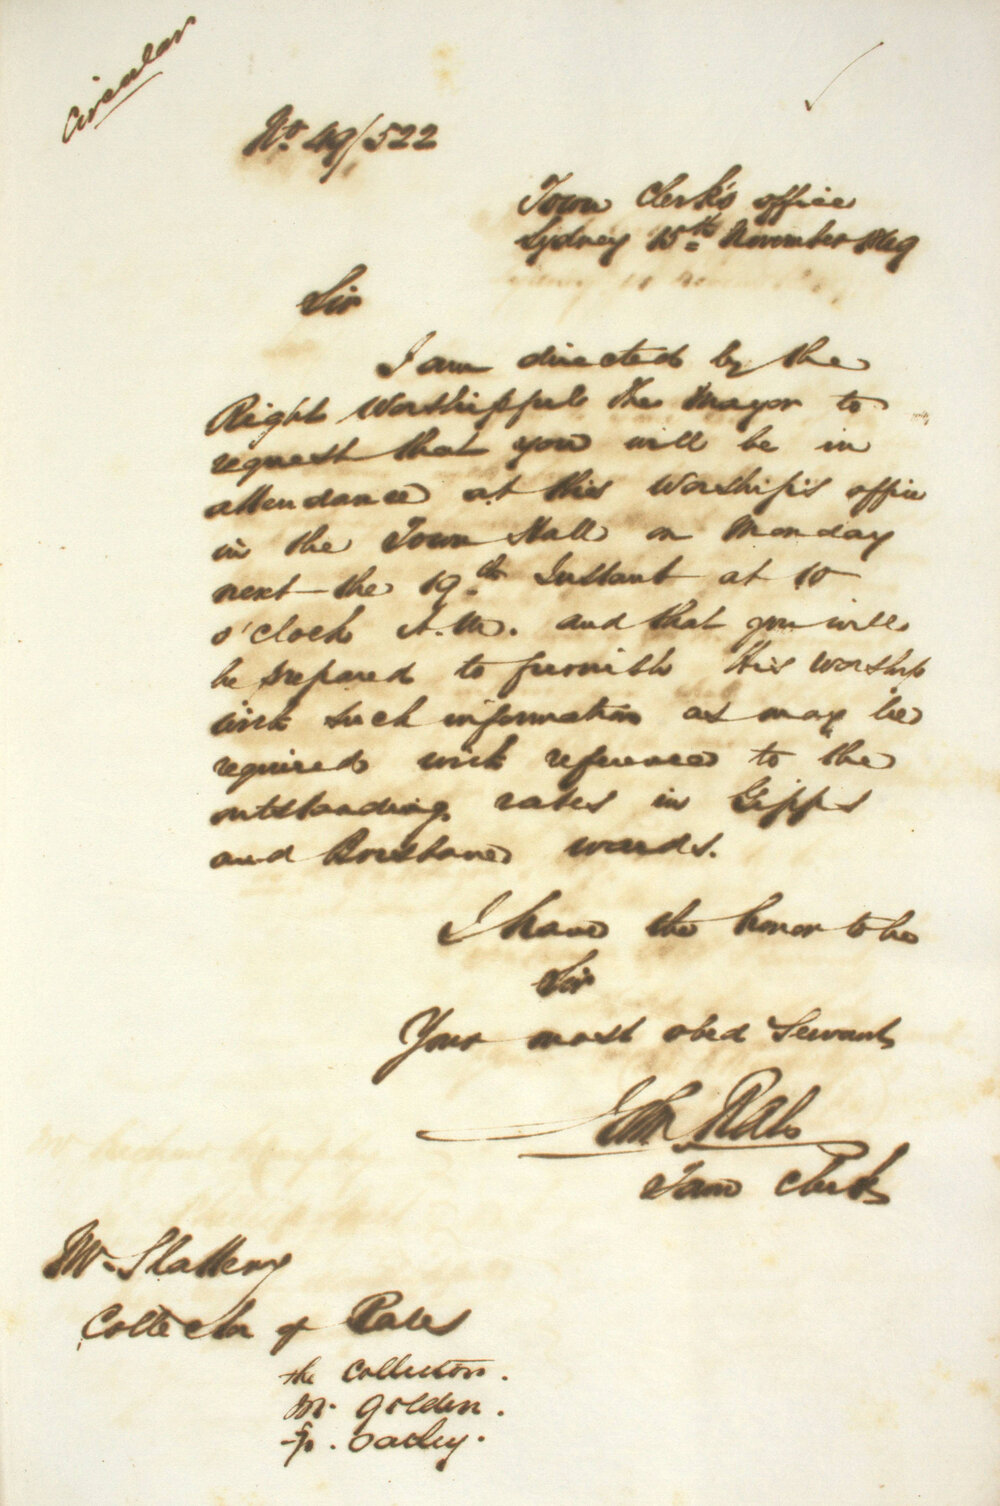 Circular
No. 49/522
Town Clerk's office
Sydney 15th November 1849
Sir
I am directed by the
Right Worshipful the Mayor to
request that you will be in
attendance at this Worship's office
in the Town Hall on Monday
next the 19th Instant at 10
o'clock A.M. and that you will
be prepared to furnish His Worship
with such information as may be
required with reference to the
outstanding rates in Gipps
and Brisbane wards.
I have the honor to be
Sir
Your most obed Servant
John
Town Clerk
Mr Slattery
Collector of Rates
the Collectors.
Mr. Golden.
Oatley.